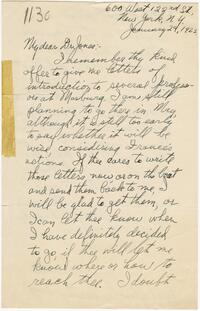 1130
600 West 122nd St.
New York, N.Y.
January 29, 1923
My dear Dr Jones:-
I remember thy kind
offer to give me letters of
introduction to several Profess-
ors at Marburg. I am still
planning to go there in May
although it is still too early
to say whether it will be
wise considering France's
actions. If thee cares to write
those letters now or on the boat
and send them back to me I
will be glad to get them, or
I can let thee know when
I have definitely decided
to go if thee will let me
know where or how to
reach thee. I doubt